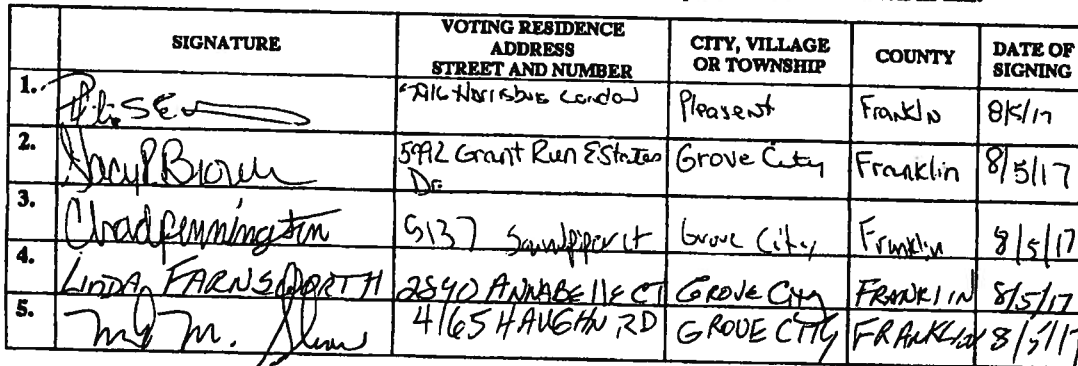 SIGNATURE
VOTING RESIDENCE
ADDRESS
STREET AND NUMBER
CITY, VILLAGE
OR TOWNSHIP
COUNTY
DATE OF
SIGNING
1. London Pleasent Franklin 8/5/17
2. Brown 5992 Grant Run EStates Grove City Franklin 8/5/17
Dr.
3. Chad Pennington 5137 Sandpiper Ct Grove City Franklin 8/5/17
4. LINDA FARNSWORTH 2590 ANNABELLE CT GROVE City FRANKLIN 8/5/17
5. M. 4165 HAUGHN RD GROVE CITY FRANKLIN 8/5/17